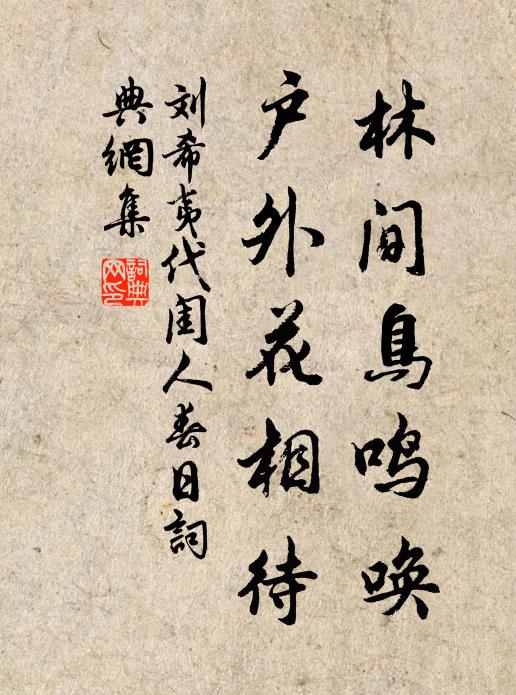 林间鳥鸣唤
户外花相待
刘希夷代闺人春日詞
典網集
詞典
网印